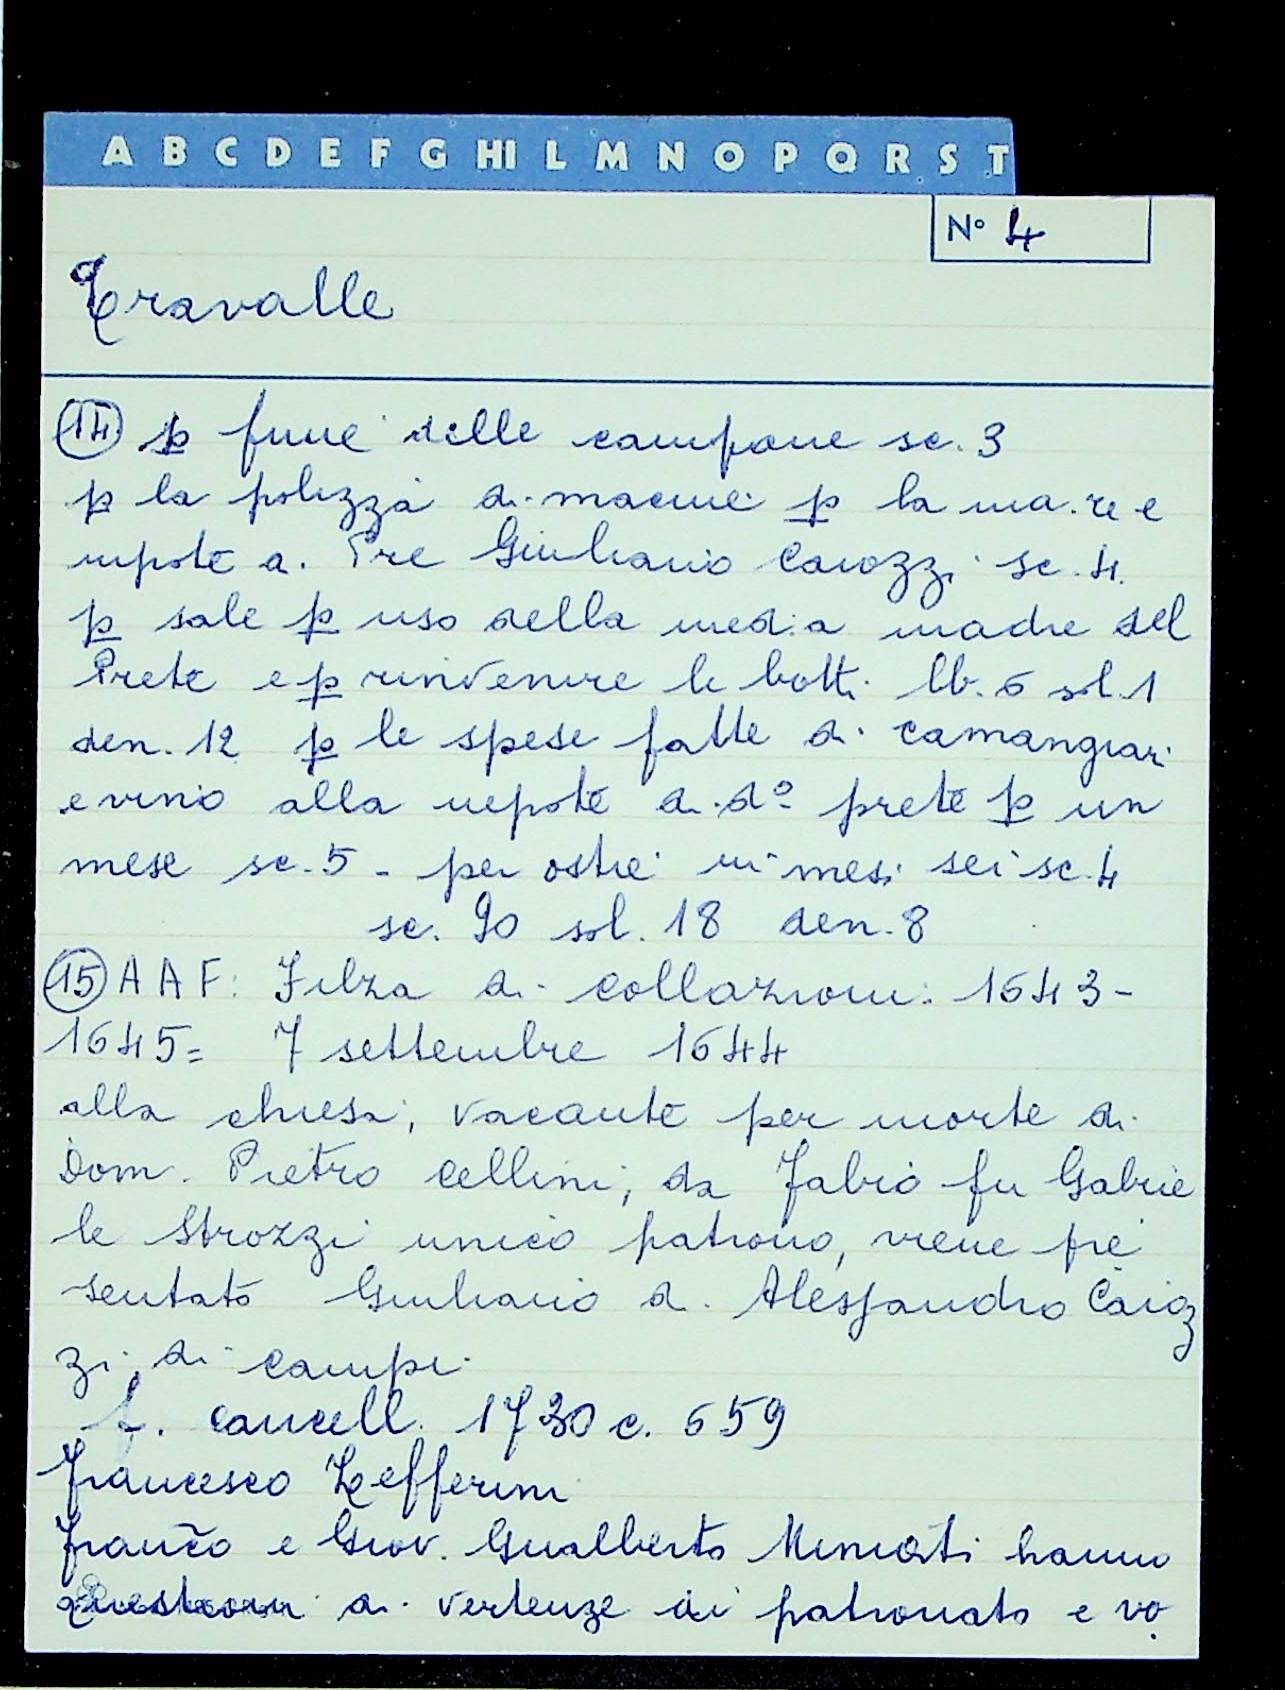 A B C D E F G HI L M N O P Q R S T
N° 4
Travalle
14 p fune delle campane sc. 3
p la polizza di macine p la ma.re e
nipote a. Pre Giuliano Caiozzi sc. 4.
p sale p uso della med.a madre del
Prete e p rinvenire le botti lb. 6 sol. 1
den. 12 p le spese fatte di camangiari
e vino alla nepote di d° prete p un
mese sc. 5 - per ostie in mesi sei sc. 4
sc. 90 sol. 18 den. 8
15 A A F: Filza di collazioni: 1643-
1645= 7 settembre 1644
alla chiesa, vacante per morte di
Dom. Pietro Cellini, da Fabio fu Gabrie
le Strozzi unico patrono, viene pre
sentato Giuliano d. Alessandro Caioz
zi, di Campi.
f. cancell. 1730 c. 659
Francesco Zefferini
Franc̃o e Giov. Gualberto Miniati hanno
questioni di vertenze di patronato e vo